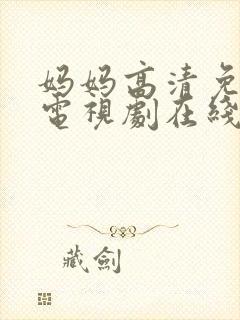 妈妈高清免
電視劇在綫
藏劍